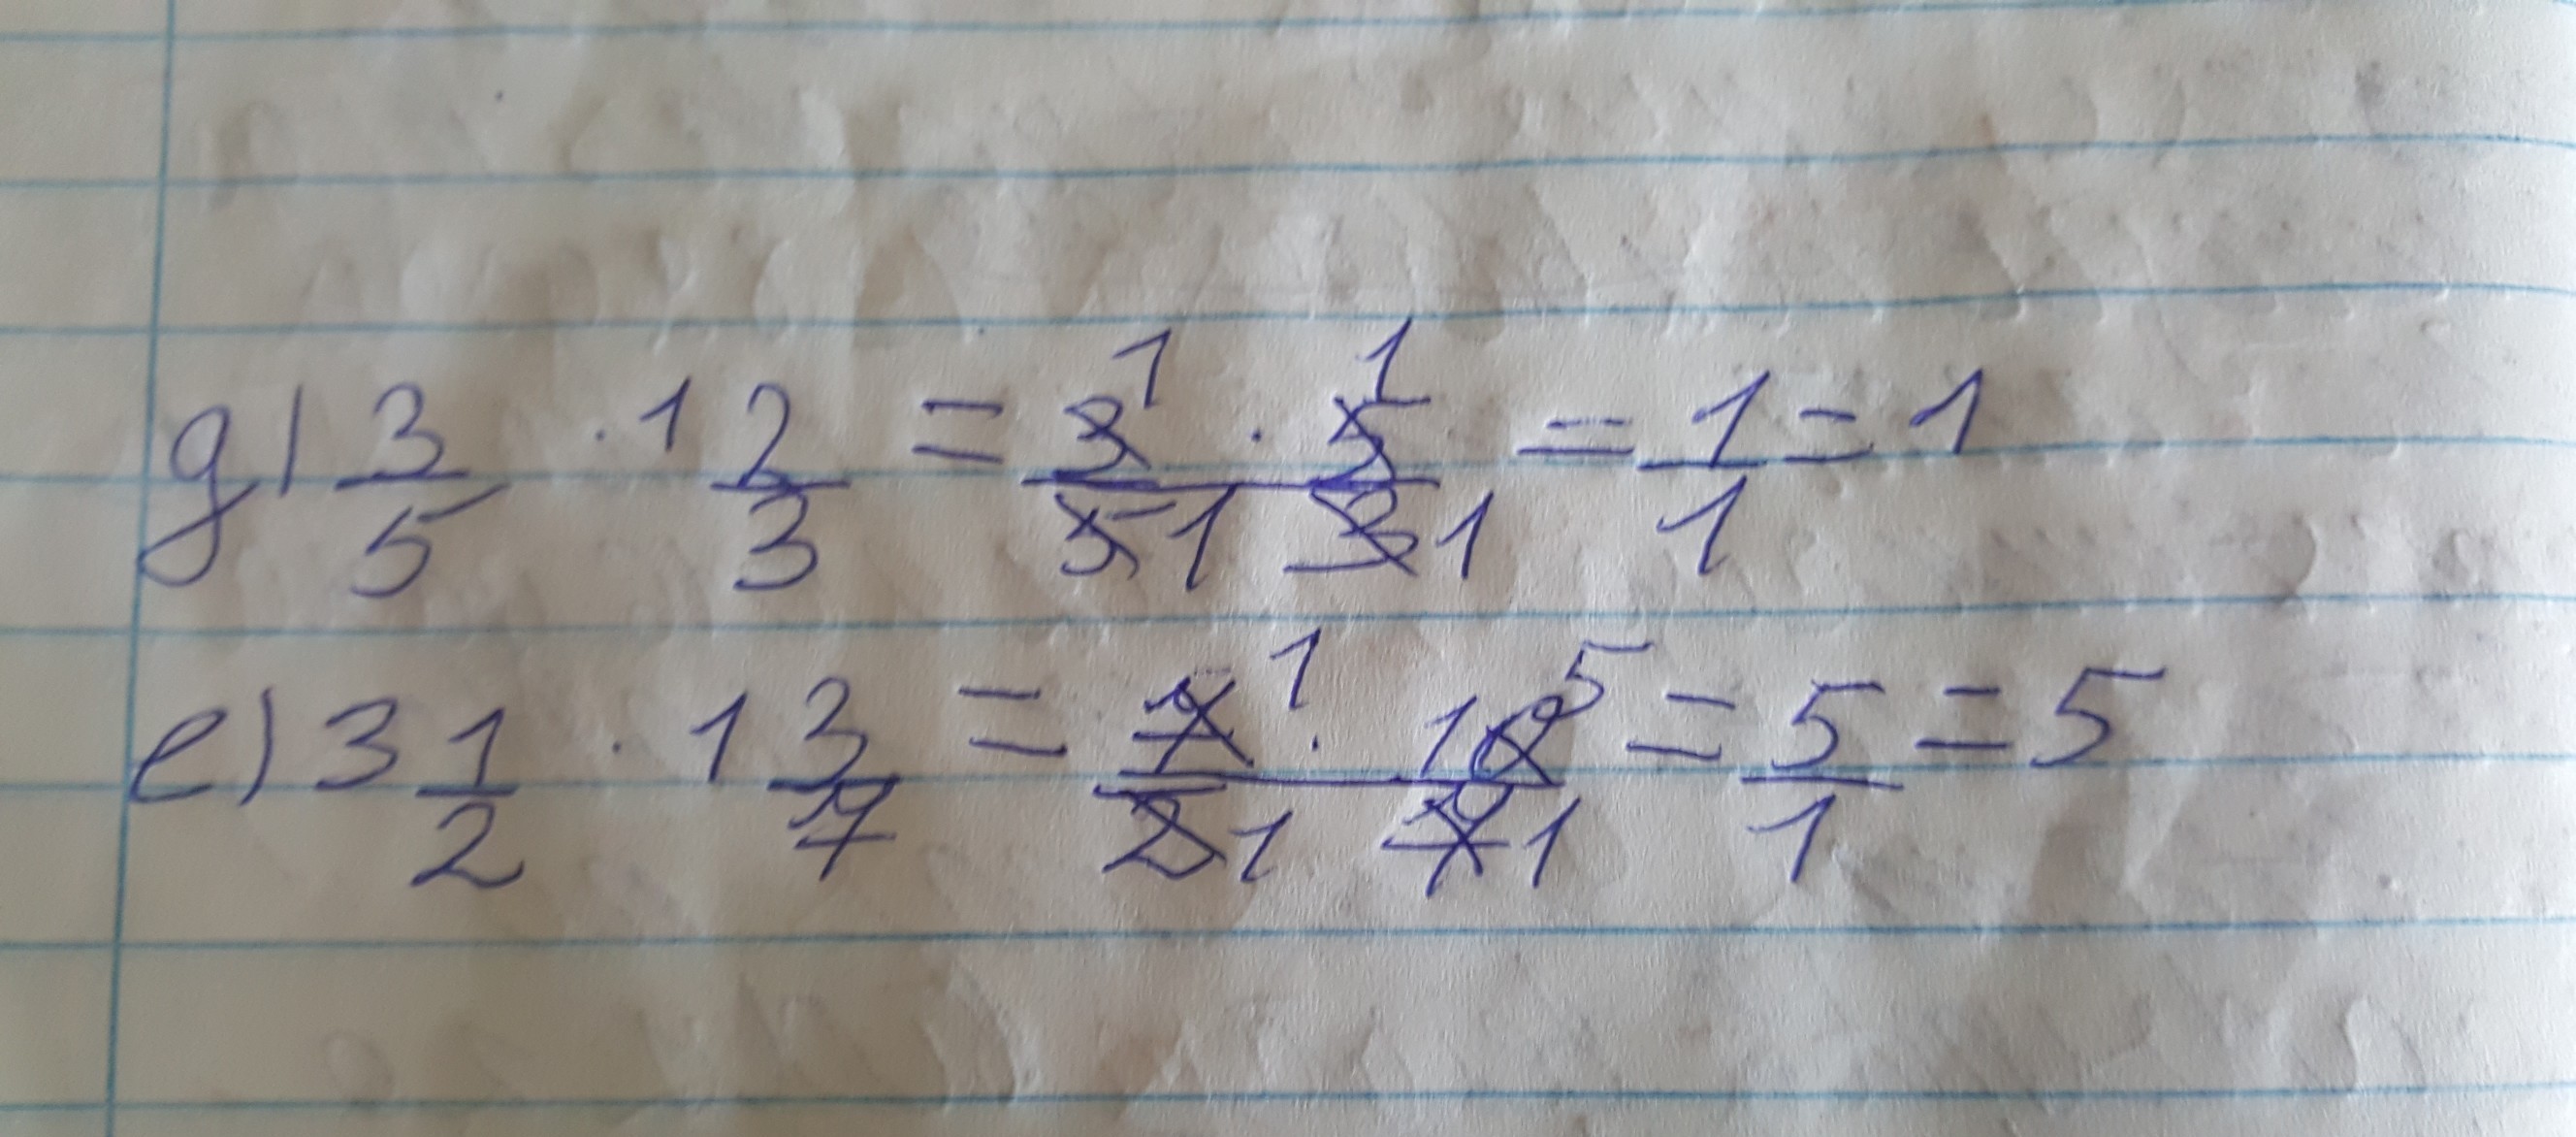 g) 3/5 · 1 2/3 = 3̸ 1 · 5̸ 1 / 5̸ 1 3̸ 1 = 1/1 = 1
e) 3 1/2 · 1 3/7 = 7̸ 1 · 1̸0̸ 5 / 2̸ 1 7̸ 1 = 5/1 = 5